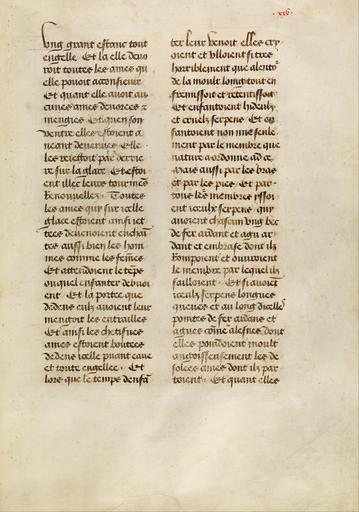 xxv.
Ung grant estanc tout
engelle Et la elle devo
roit toutes les ames qu
elle povoit aconsievir
Et quant elle avoit au
cunes ames devorees z
mengies Et quen son
ventre elles estoient a
neant devenues Elle
les regettoit par derrie
re sur la glace Et estoi
ent illec leurs tourmens
renouvelles · Toutes
les ames qui sur icelle
glace estoient ainsi iet
tees devenoient enchain
tes aussi bien les hom
mes comme les femes
Et attendoient le temps
ouquel enfanter devoi
ent · Et la portee que
dedens eulx avoient leur
mengoit les entrailles
Et ainsi les chetifves
ames estoient boutees
dedens icelle puant eaue
et toute engellee · Et
lors que le temps denfā
ter leur venoit elles cry
oient et ulloient si tres
horriblement que alento2
de la moult loing tout en
fremissoit et retentissoit
Et enfantoient hideulx
et cruelz serpens Et en
fantoient non mie seule
ment par le membre que
nature a ordonne ad ce
mais aussi par les bras
et par les pies Et par
tous les membres yssoi
ent iceulx serpens qui
avoient chascun ung bec
de fer ardant et agu ar
dant et embrase dont ilz
rompoient et ouvroient
le membre par lequel ilz
sailloient · Et si avoiet
iceulx serpens longues
queues et au long dicelles
pointes de fer ardans et
agues come alesnes dont
elles poindoient moult
angoisseusement les de
solees ames dont ilz par
toient · Et quant elles